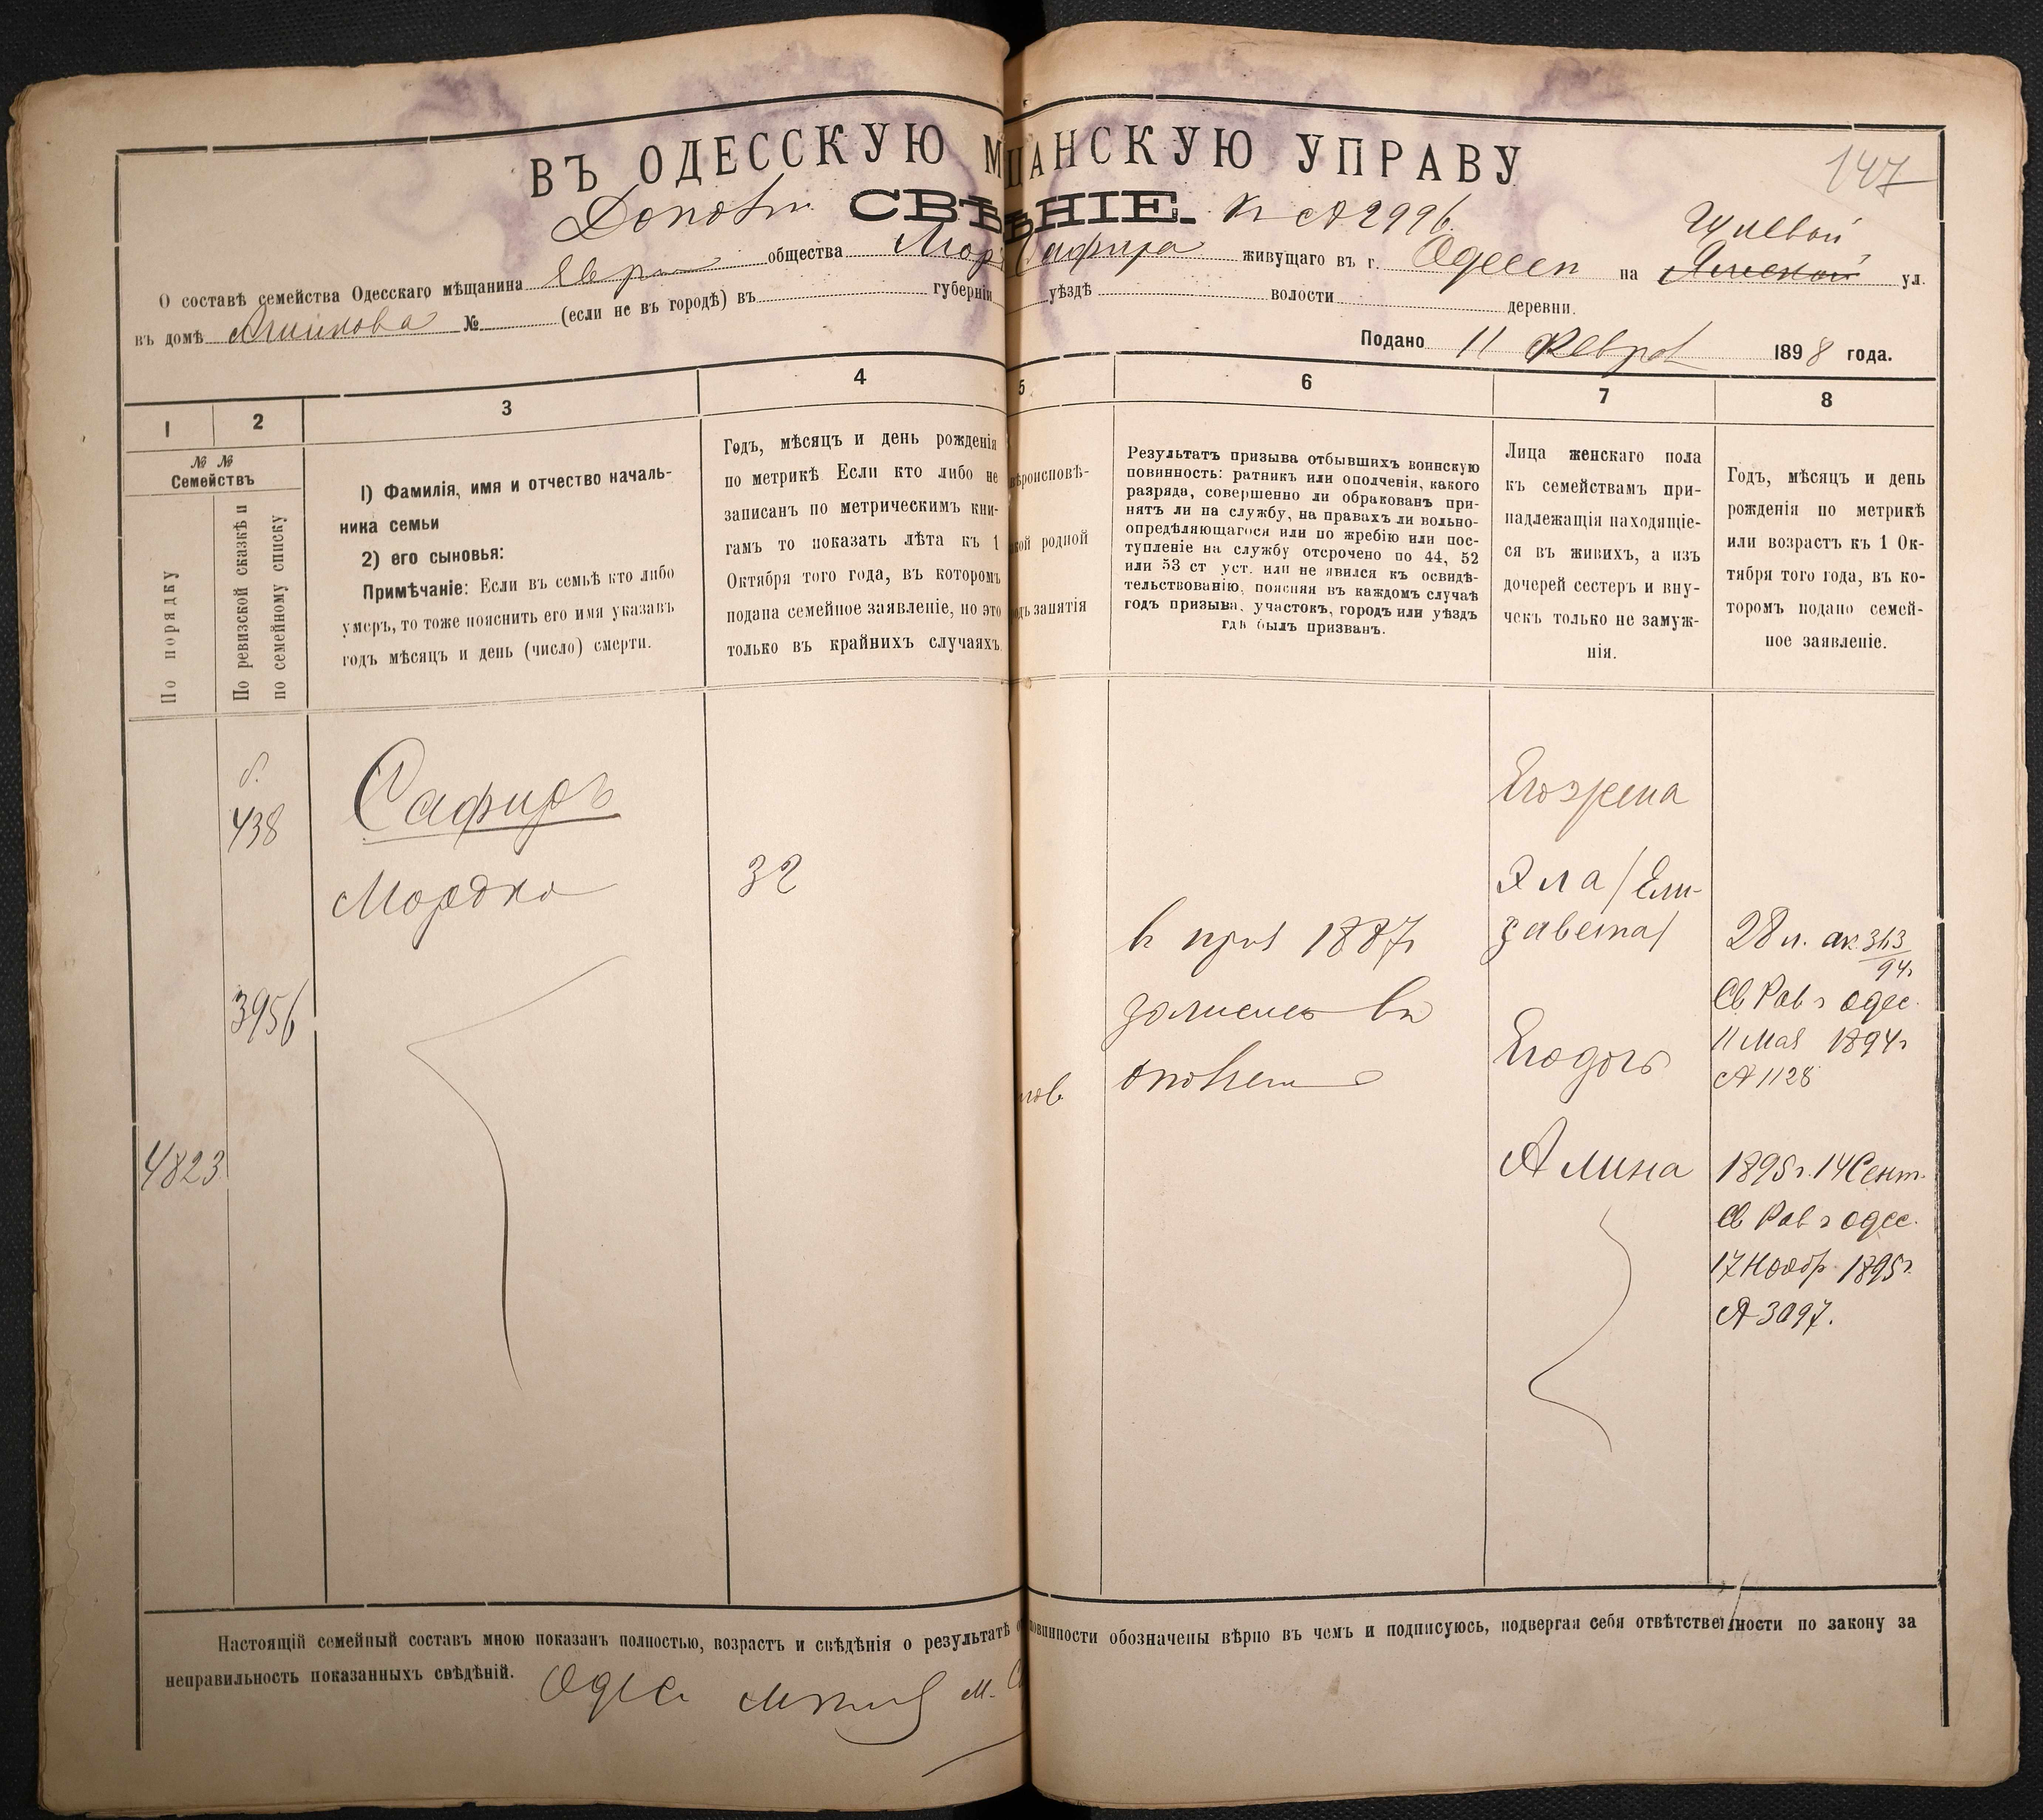 147
ВЪ ОДЕССКУЮ М ЩАНСКУЮ УПРАВУ
СВѢ ѢНІЕ.
2996
О составѣ семейства Одесскаго мѣщанина Евр общества Мор Сафира живущаго въ г. Одессѣ на ул.
въ домѣ № (если не въ городѣ) въ губерніи уѣздѣ волости деревни.
Подано 11 Феврал 1898 года.
1 2 3 4 5 6 7 8
№ №
Семействъ
По порядку
По ревизской сказкѣ и
по семейному списку
1) Фамилія, имя и отчество началь-
ника семьи
2) его сыновья:
Примѣчаніе: Если въ семьѣ кто либо
умеръ, то тоже пояснить его имя указавъ
годъ мѣсяцъ и день (число) смерти.
Годъ, мѣсяцъ и день рожденія
по метрикѣ Если кто либо не
записанъ по метрическимъ кни-
гамъ то показать лѣта къ 1
Октября того года, въ которомъ
подана семейное заявленіе, но это
только въ крайнихъ случаяхъ
вѣроисповѣ-
кой родной
одъ занятія
Результатъ призыва отбывшихъ воинскую
повинность: ратникъ или ополченія, какого
разряда, совершенно ли обракованъ при-
нятъ ли на службу, на правахъ ли вольно-
опредѣляющагося или по жребію или пос-
тупленіе на службу отсрочено по 44, 52
или 53 ст уст. или не явился къ освидѣ-
тельствованію, поясняя въ каждомъ случаѣ
годъ призыва, участокъ, городъ или уѣздъ
гдѣ былъ призванъ.
Лица женскаго пола
къ семействамъ при-
надлежащія находящіе-
ся въ живихъ, а изъ
дочерей сестеръ и вну-
чекъ только не замуж-
нія.
Годъ, мѣсяцъ и день
рожденія по метрикѣ
или возрастъ къ 1 Ок-
тября того года, въ ко-
торомъ подано семей-
ное заявленіе.
438
3956
4823
Сафиръ
Мордко
32
въ приз 1887г
зачисленъ въ
ополчен
Егожена
Эла /Ели-
завета/
28 л. ак 313
94г
Св Рав г Одес.
11 Мая 1894г
№ 1128
Егодочь
Алина
1895г. 14 Сент.
Св Рав г Одес.
17 Ноябр 1895г.
№ 3097.
Настоящій семейный составъ мною показанъ полностью, возрастъ и свѣдѣнія о результатѣ овинности обозначены вѣрно въ чемъ и подписуюсь, подвергая себя отвѣтственности по закону за
неправильность показанныхъ свѣдѣній.
Одес М. С